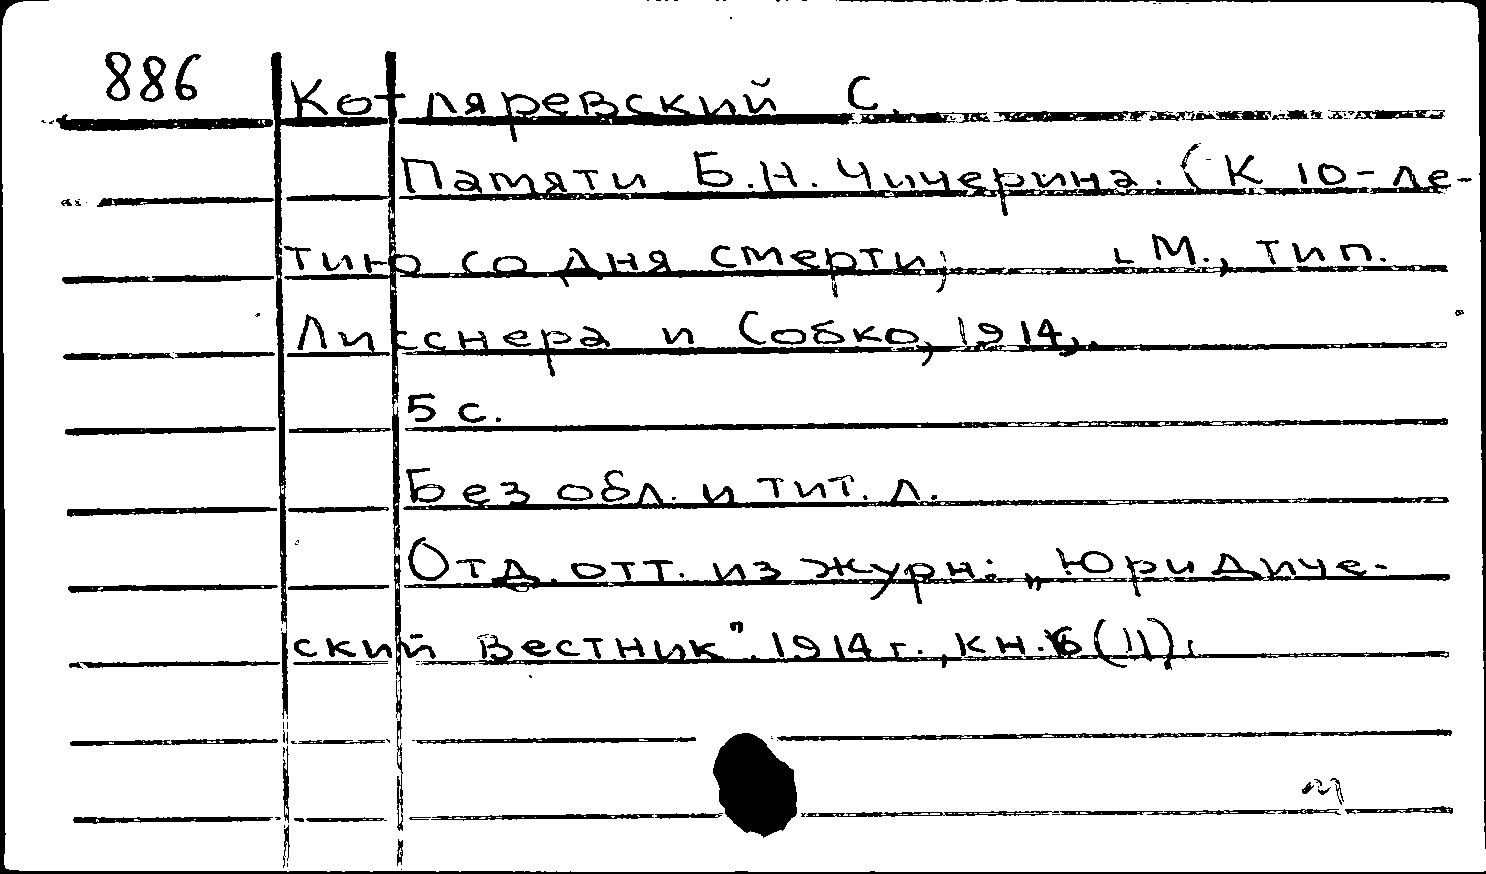 886
Котляревский С.
Памяти Б.Н. Чичерина. (К 10-ле-
тию со дня смерти; М., тип.
Лисснера и Собко, 1914,.
5 с.
Без обл. и тит. л.
Отд. отт. из журн: „Юридиче-
ский вестник". 1914 г., кн. 6 (II).